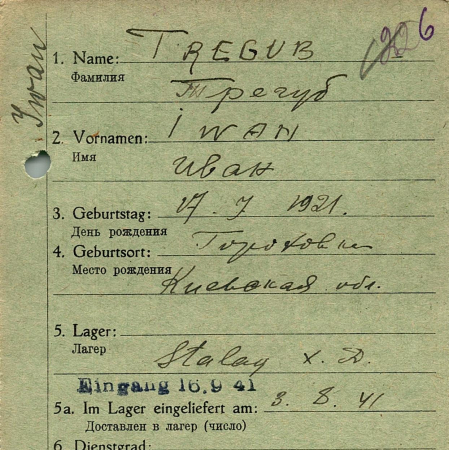 206
Iwan
1. Name: TREGUB
Фамилия
Трегуб
2. Vornamen: IWAN
Имя
Иван
3. Geburtstag: 17. 7 1921.
День рождения
4. Geburtsort: Гороховка
Место рождения
Киевская обл.
5. Lager:
Лагер
Stalag X. D.
Eingang 16.9 41
5a. Im Lager eingeliefert am: 3. 8. 41.
Доставлен в лагер (число)
6. Dienstgrad: